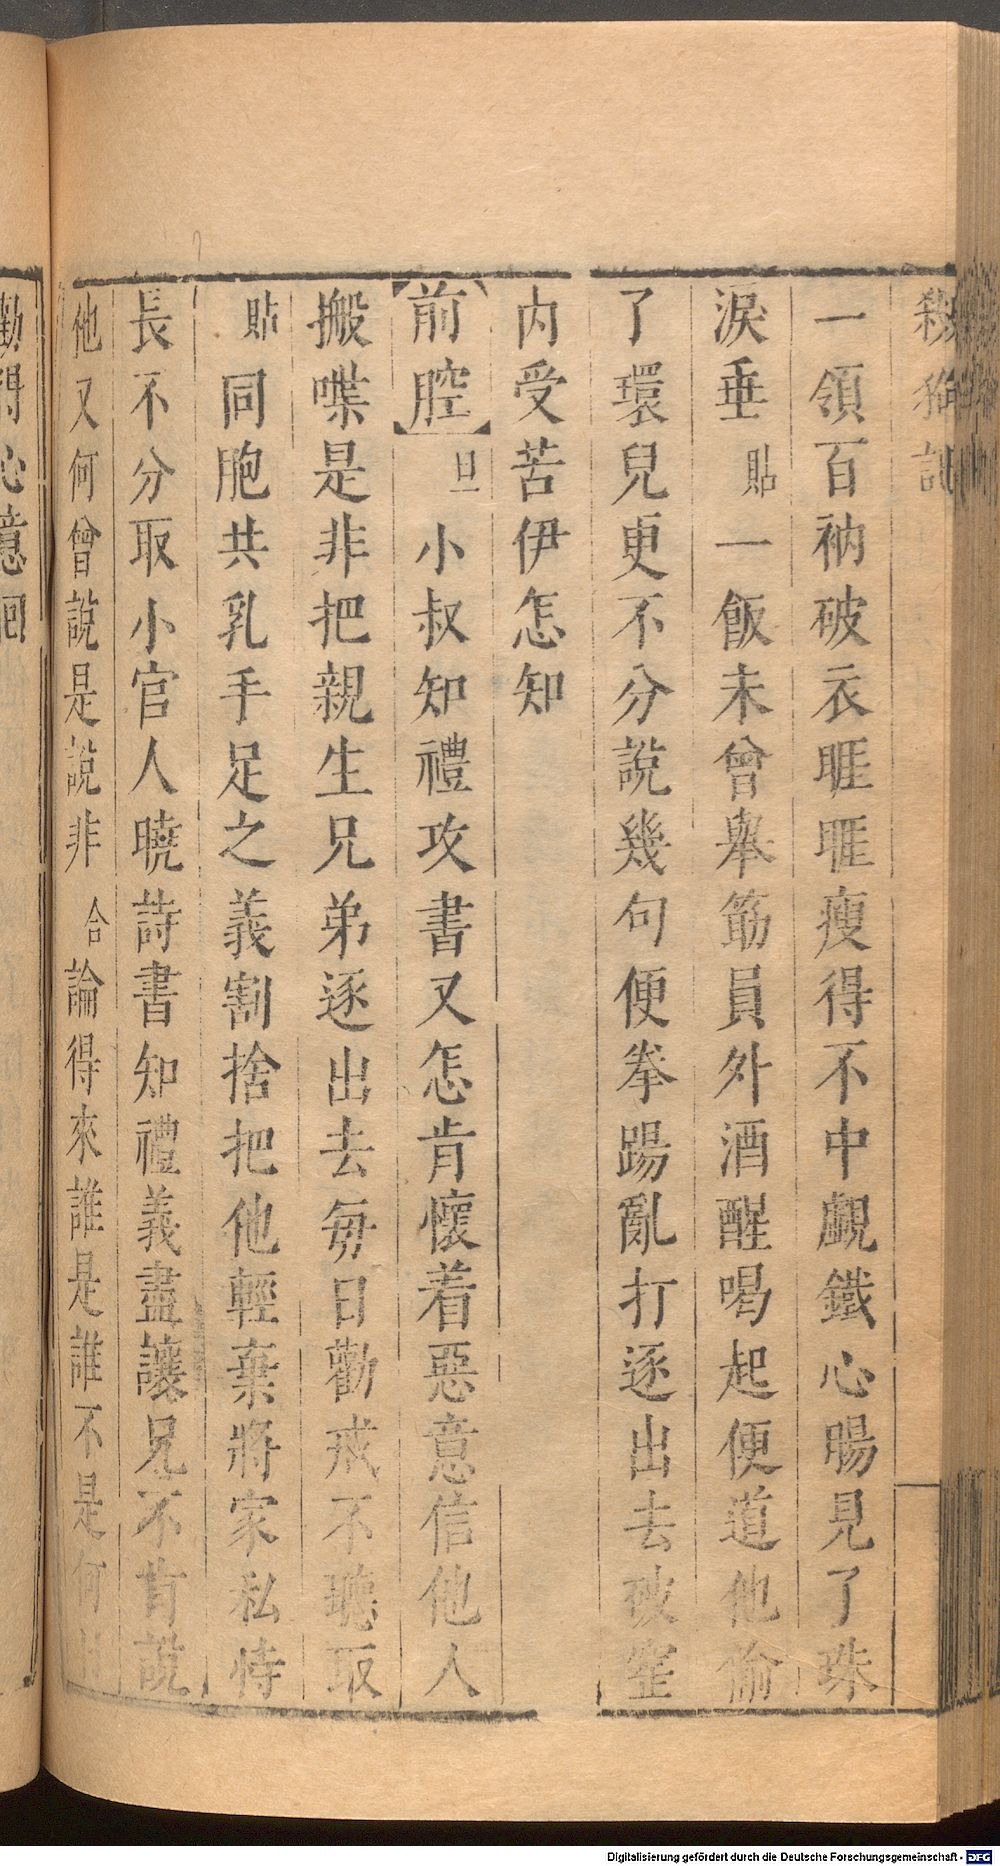 殺狗記
一領百衲破衣睚睚瘦得不中覷鐵心腸見了珠
淚垂貼一飯未曾舉筯員外酒醒喝起便道他偷
了環兒更不分說幾句便拳踢亂打逐出去破窰
內受苦伊怎知
前腔旦小叔知禮攻書又怎肯懷着惡意信他人
搬喋是非把親生兄弟逐出去每日勸戒不聽取
貼同胞共乳手足之義割捨把他輕棄將家私恃
長不分取小官人曉詩書知禮義盡讓兄不肯說
他又何曾說是說非合論得來誰是誰不是何
勸得心意回
Digitalisierung gefördert durch die Deutsche Forschungsgemeinschaft - DFG